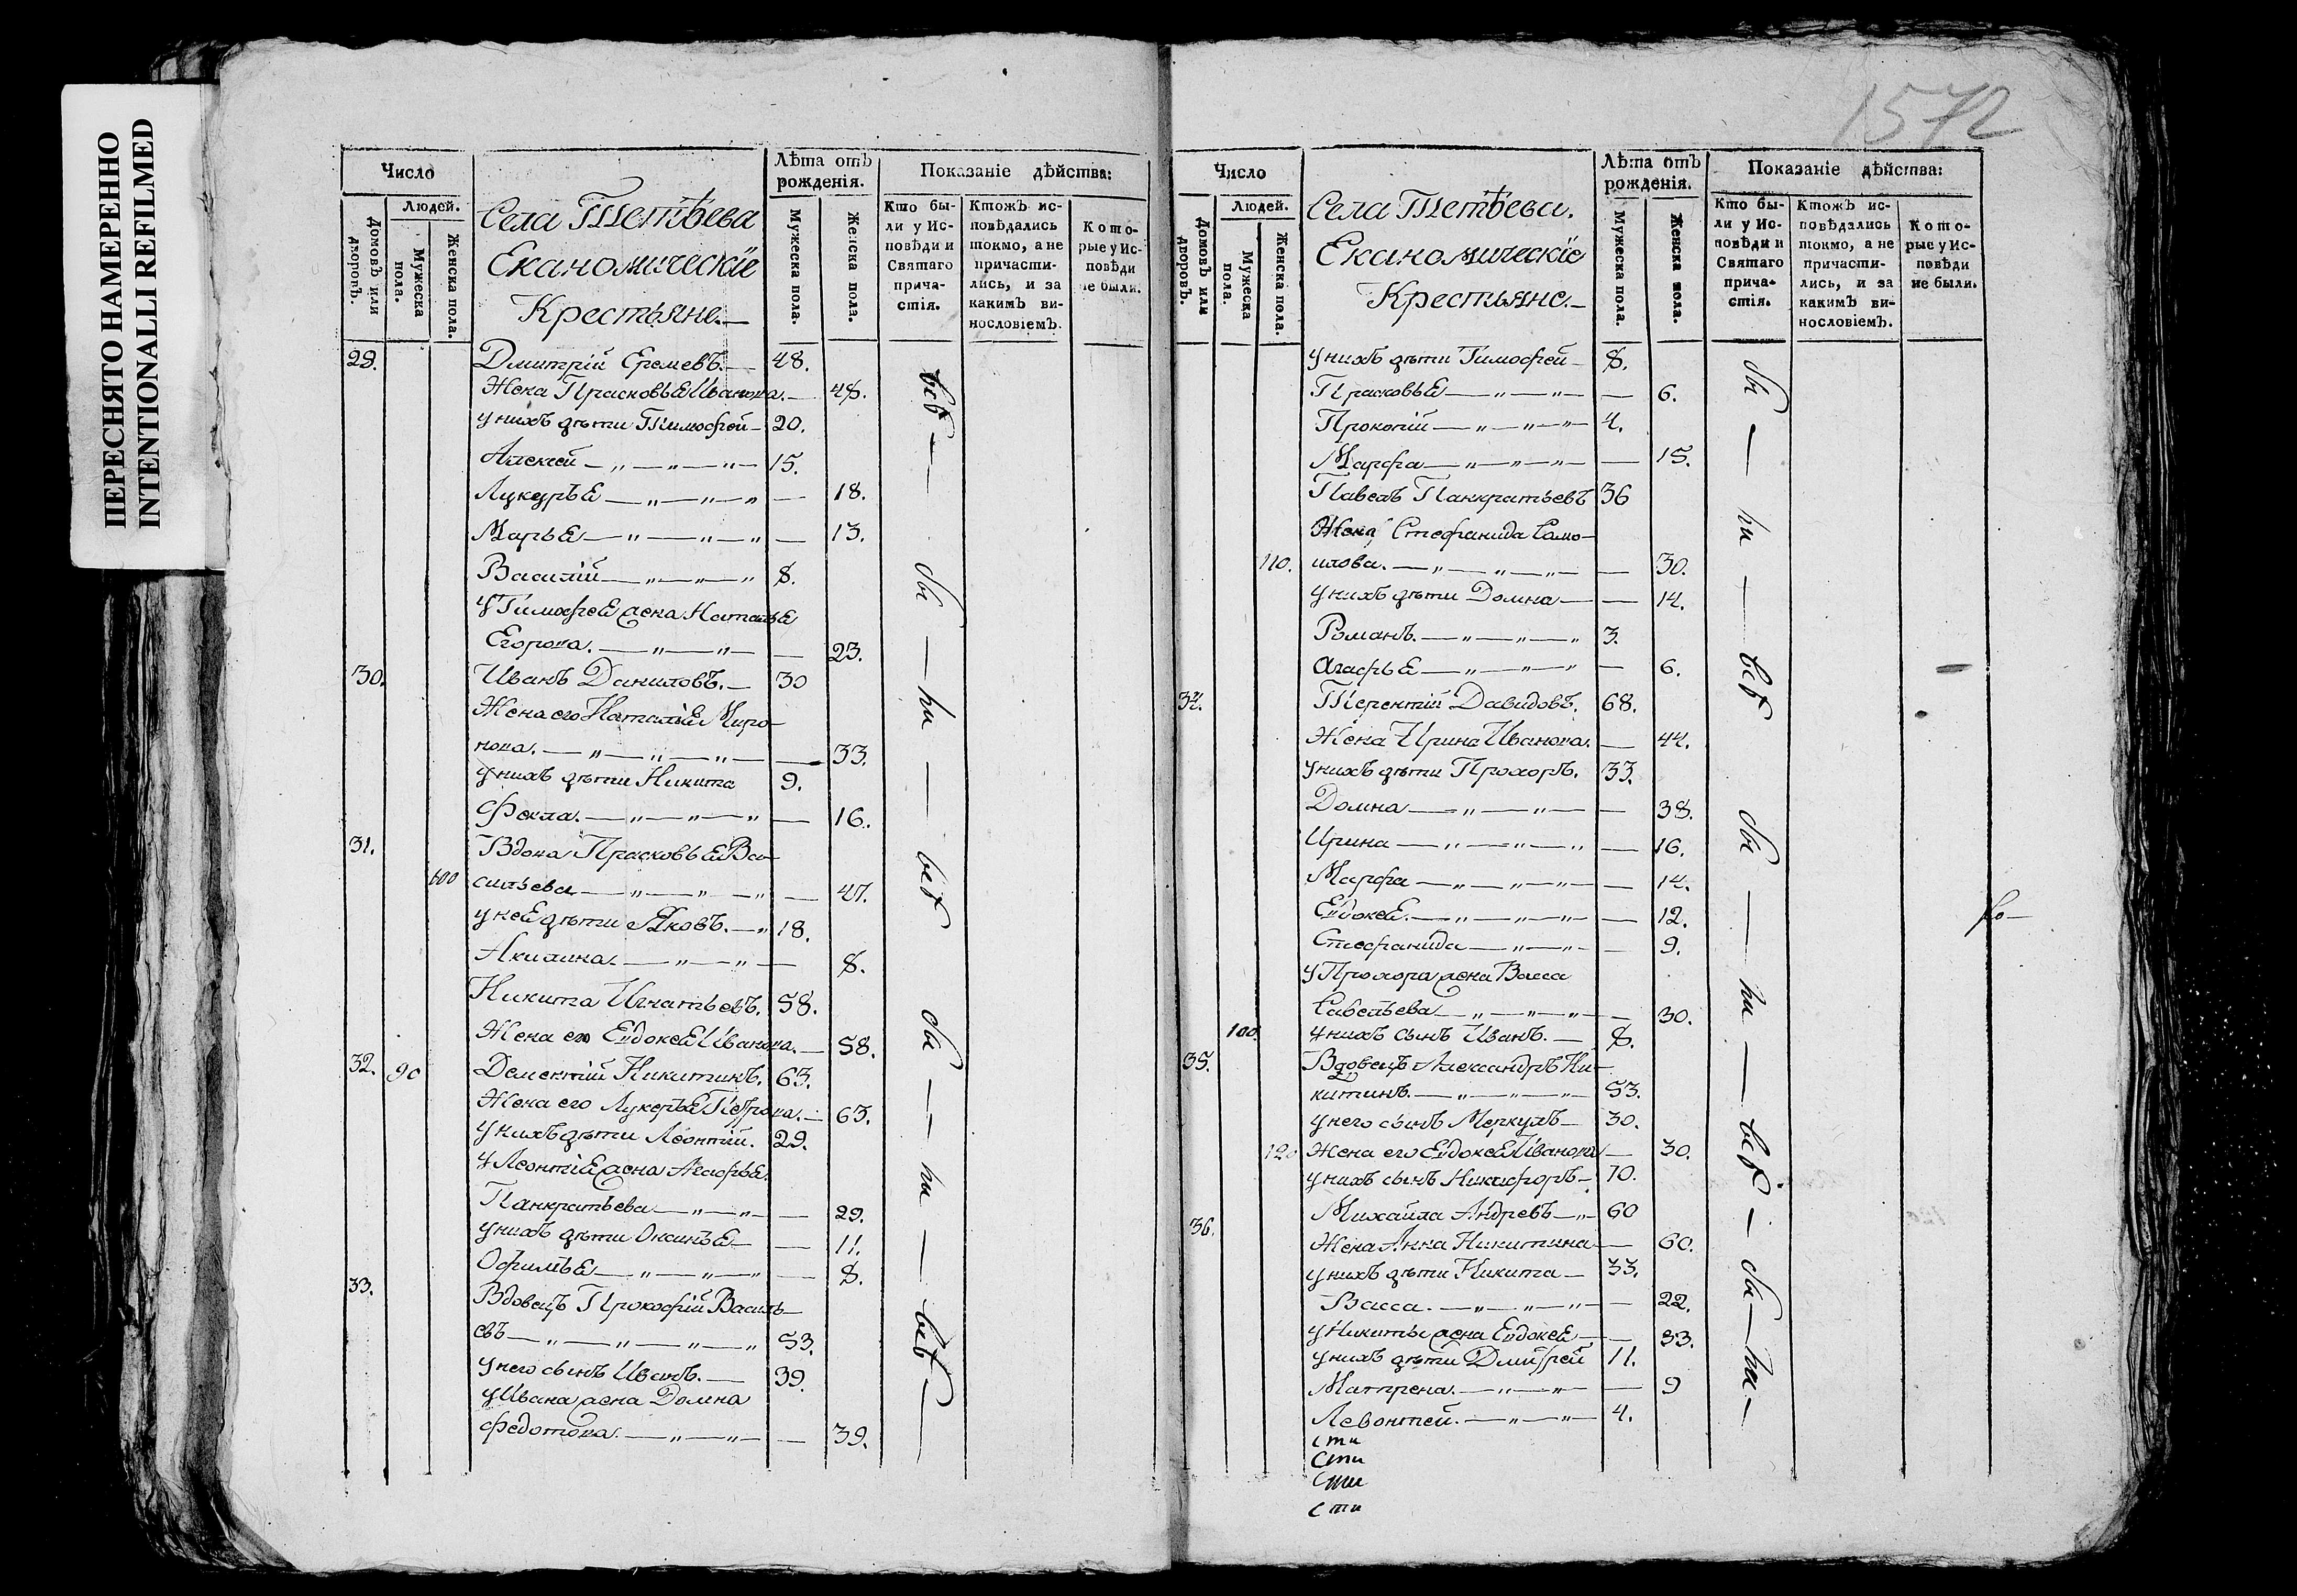 ПЕРЕСНЯТО НАМЕРЕННО
INTENTIONALLI REFILMED
1572
Число
Людей.
Домовъ или дворовъ.
Мужеска пола.
Женска пола.
Села Тетѣева
Екaномическїе
Крестьяне.
Лѣта отъ рожденія.
Мужеска пола.
Женска пола.
Показаніе дѣйства:
Кто были у Исповѣди и Святаго причастія.
Ктожъ исповѣдались токмо, а не причастились, и за какимъ винословіемъ.
Которые у Исповѣди не были.
29. Дмитрій Еремевъ. — 48.
Жена Прасковья Иванова. — 48.
у нихъ дѣти Тимофей — 20.
Алексей — „ — „ — „ — 15.
Лукерья — „ — „ — „ — 18.
Марья — „ — „ — „ — 13.
Василій — „ — „ — „ 8.
у Тимофея жена Наталья
Егорова. — „ — „ — — 23.
30. Иванъ Даниловъ. — 30
Жена его Наталья Миро-
нова. — „ — „ — „ — — 33.
у нихъ дѣти Никита 9.
Фекла. — „ — „ — „ — 16.
31. Вдова Прасковья Ва-
100 сильева — „ — „ — „ — 47.
у нея дѣти Яковъ. — „ 18.
Акилина. — „ — „ — — 8.
Никита Игнатьевъ. 58.
Жена его Евдокея Иванова. — 58.
32. 90 Дементій Никитинъ. 63.
Жена его Лукерья Петрова. — 63.
у нихъ дѣти Леонтій. 29.
у Леонтія жена Агафья
Панкратьева — „ — „ — — 29.
у нихъ дѣти Оксинья — — 11.
Офимья — „ — „ — „ — — 8.
33. Вдовецъ Прокофій Василь-
евъ — „ — „ — „ — „ 53.
у него сынъ Иванъ. — 39.
у Ивана жена Домна
Федотова. — „ — „ — — 39.
всѣ — были — всѣ — были — всѣ —
Число
Людей.
Домовъ или дворовъ.
Мужеска пола.
Женска пола.
Села Тетѣева.
Екaномическїе
Крестьяне. —
Лѣта отъ рожденія.
Мужеска пола.
Женска пола.
Показаніе дѣйства:
Кто были у Исповѣди и Святаго причастія.
Ктожъ исповѣдались токмо, а не причастились, и за какимъ винословіемъ.
Которые у Исповѣди не были.
у нихъ дѣти Тимофей — 8.
Прасковья — „ — „ — — 6.
Прокопій — „ — „ — „ — 4.
Марфа — „ — „ — „ — — 15.
Павелъ Панкратьевъ 36
Жена Стефанида Само-
110. илова. — „ — „ — „ — — 30.
у нихъ дѣти Домна — — 14.
Романъ. — „ — „ — „ 3.
Агафья — „ — „ — „ — 6.
34. Терентій Давидовъ. 68.
Жена Ирина Иванова. — 44.
у нихъ дѣти Прохоръ. 33.
Домна — „ — „ — — 38.
Ирина — „ — „ — „ — 16.
Марфа — „ — „ — „ — — 14.
Евдокея. — „ — „ — „ — — 12.
Стефанида — „ — „ — — 9.
у Прохора жена Васса
Савельева — „ — „ — „ — — 30.
100. у нихъ сынъ Иванъ. — 8.
35. Вдовецъ Александръ Ни-
китинъ. — „ — „ — „ — 53.
у него сынъ Меркулъ — 30.
120 Жена его Евдокея Иванова — 30.
у нихъ сынъ Никифоръ — 10.
36. Михайла Андревъ — „ — 60
Жена Анна Никитина — 60.
у нихъ дѣти Никита — 33.
Васса. — „ — „ — „ — — 22.
у Никиты жена Евдокея — — 33.
у нихъ дѣти Дмитрей 11.
Матрена. — „ — „ — 9
Левонтей. — „ — „ — 4.
сти
сти
сти
сти
бы — ли — всѣ бы — ли — всѣ — бы — ли —